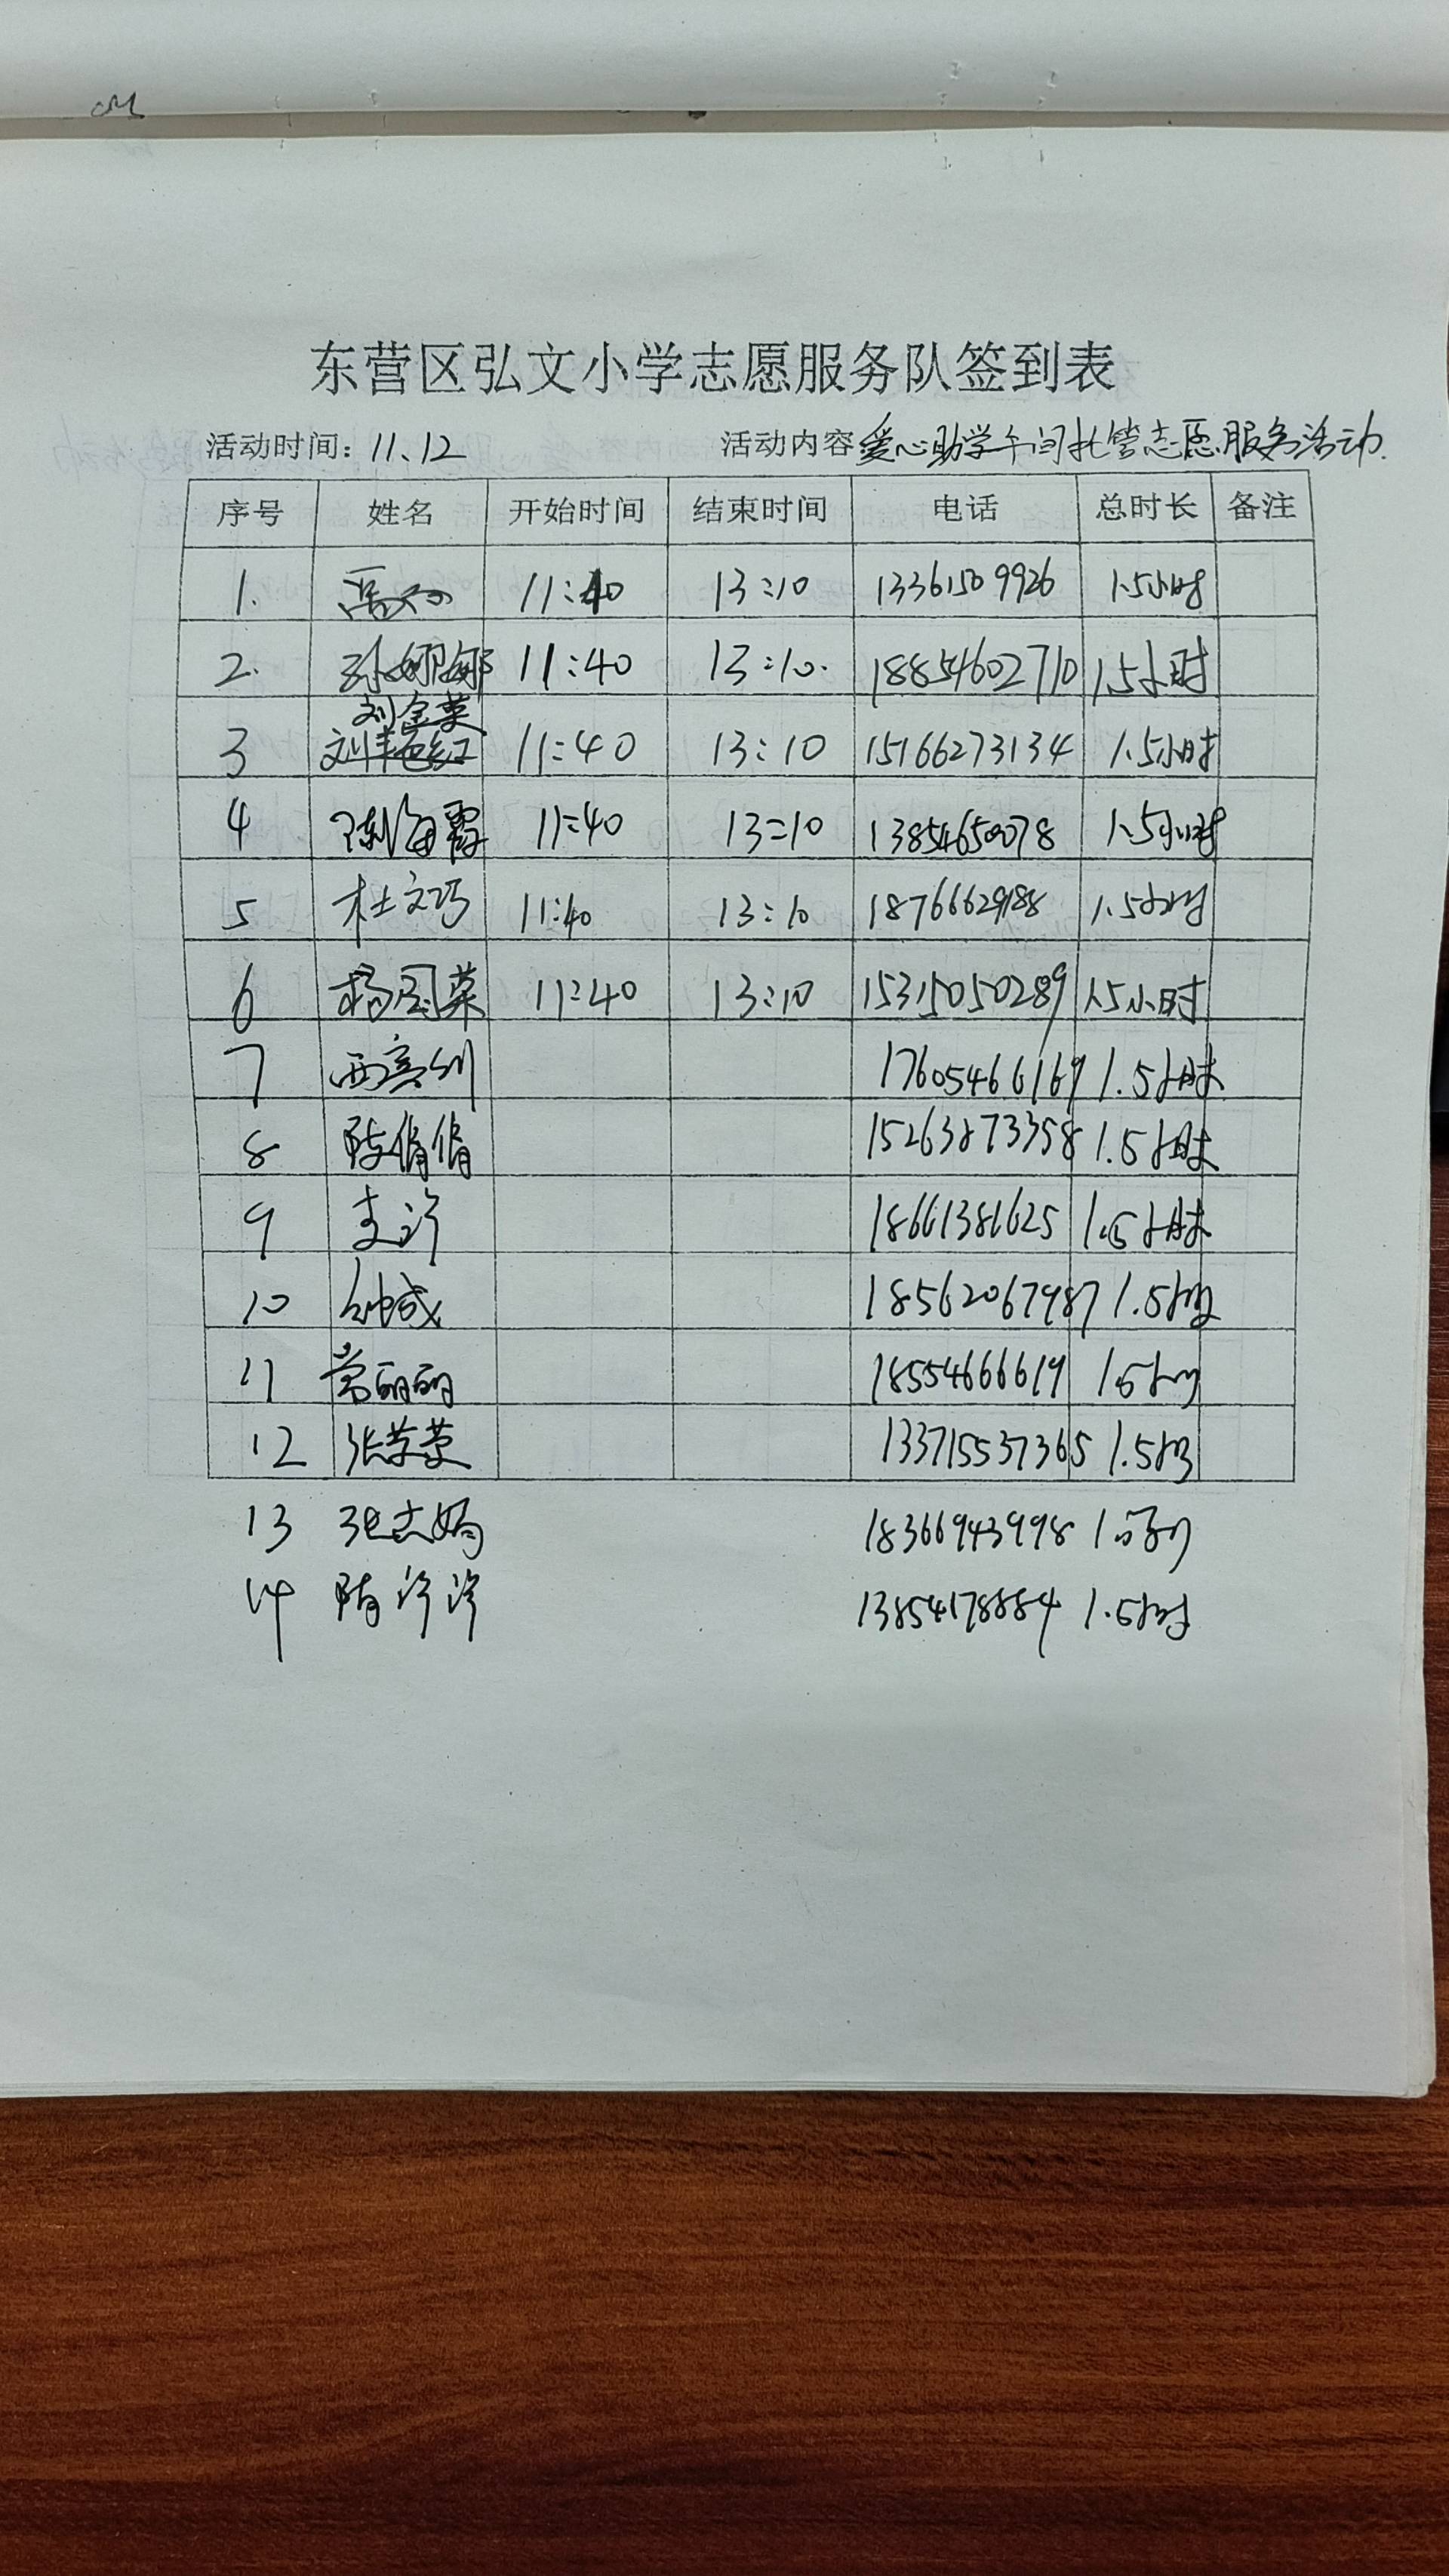 东营区弘文小学志愿服务队签到表
活动时间：11.12 活动内容 爱心助学午间托管志愿服务活动.
序号 姓名 开始时间 结束时间 电话 总时长 备注
1. 11:40 13:10 13361509926 1.5小时
2. 孙娜娜 11:40 13:10. 18854602710 1.5小时
刘金英
3 刘艳红 11:40 13:10 15166273134 1.5小时
4 陈海霞 11:40 13:10 13854650078 1.5小时
5 杜文巧 11:40 13:10 18766629188 1.5小时
6 杨国菜 11:40 13:10 15315050289 1.5小时
7 17605466169 1.5小时
8 陈倩倩 15263873358 1.5小时
9 李沂 18661381625 1.5小时
10 18562067987 1.5小时
11 常丽丽 18554666619 1.5小时
12 张荣荣 133715537365 1.5小时
13 张志娟 18366943998 1.5小时
14 13854178884 1.5小时